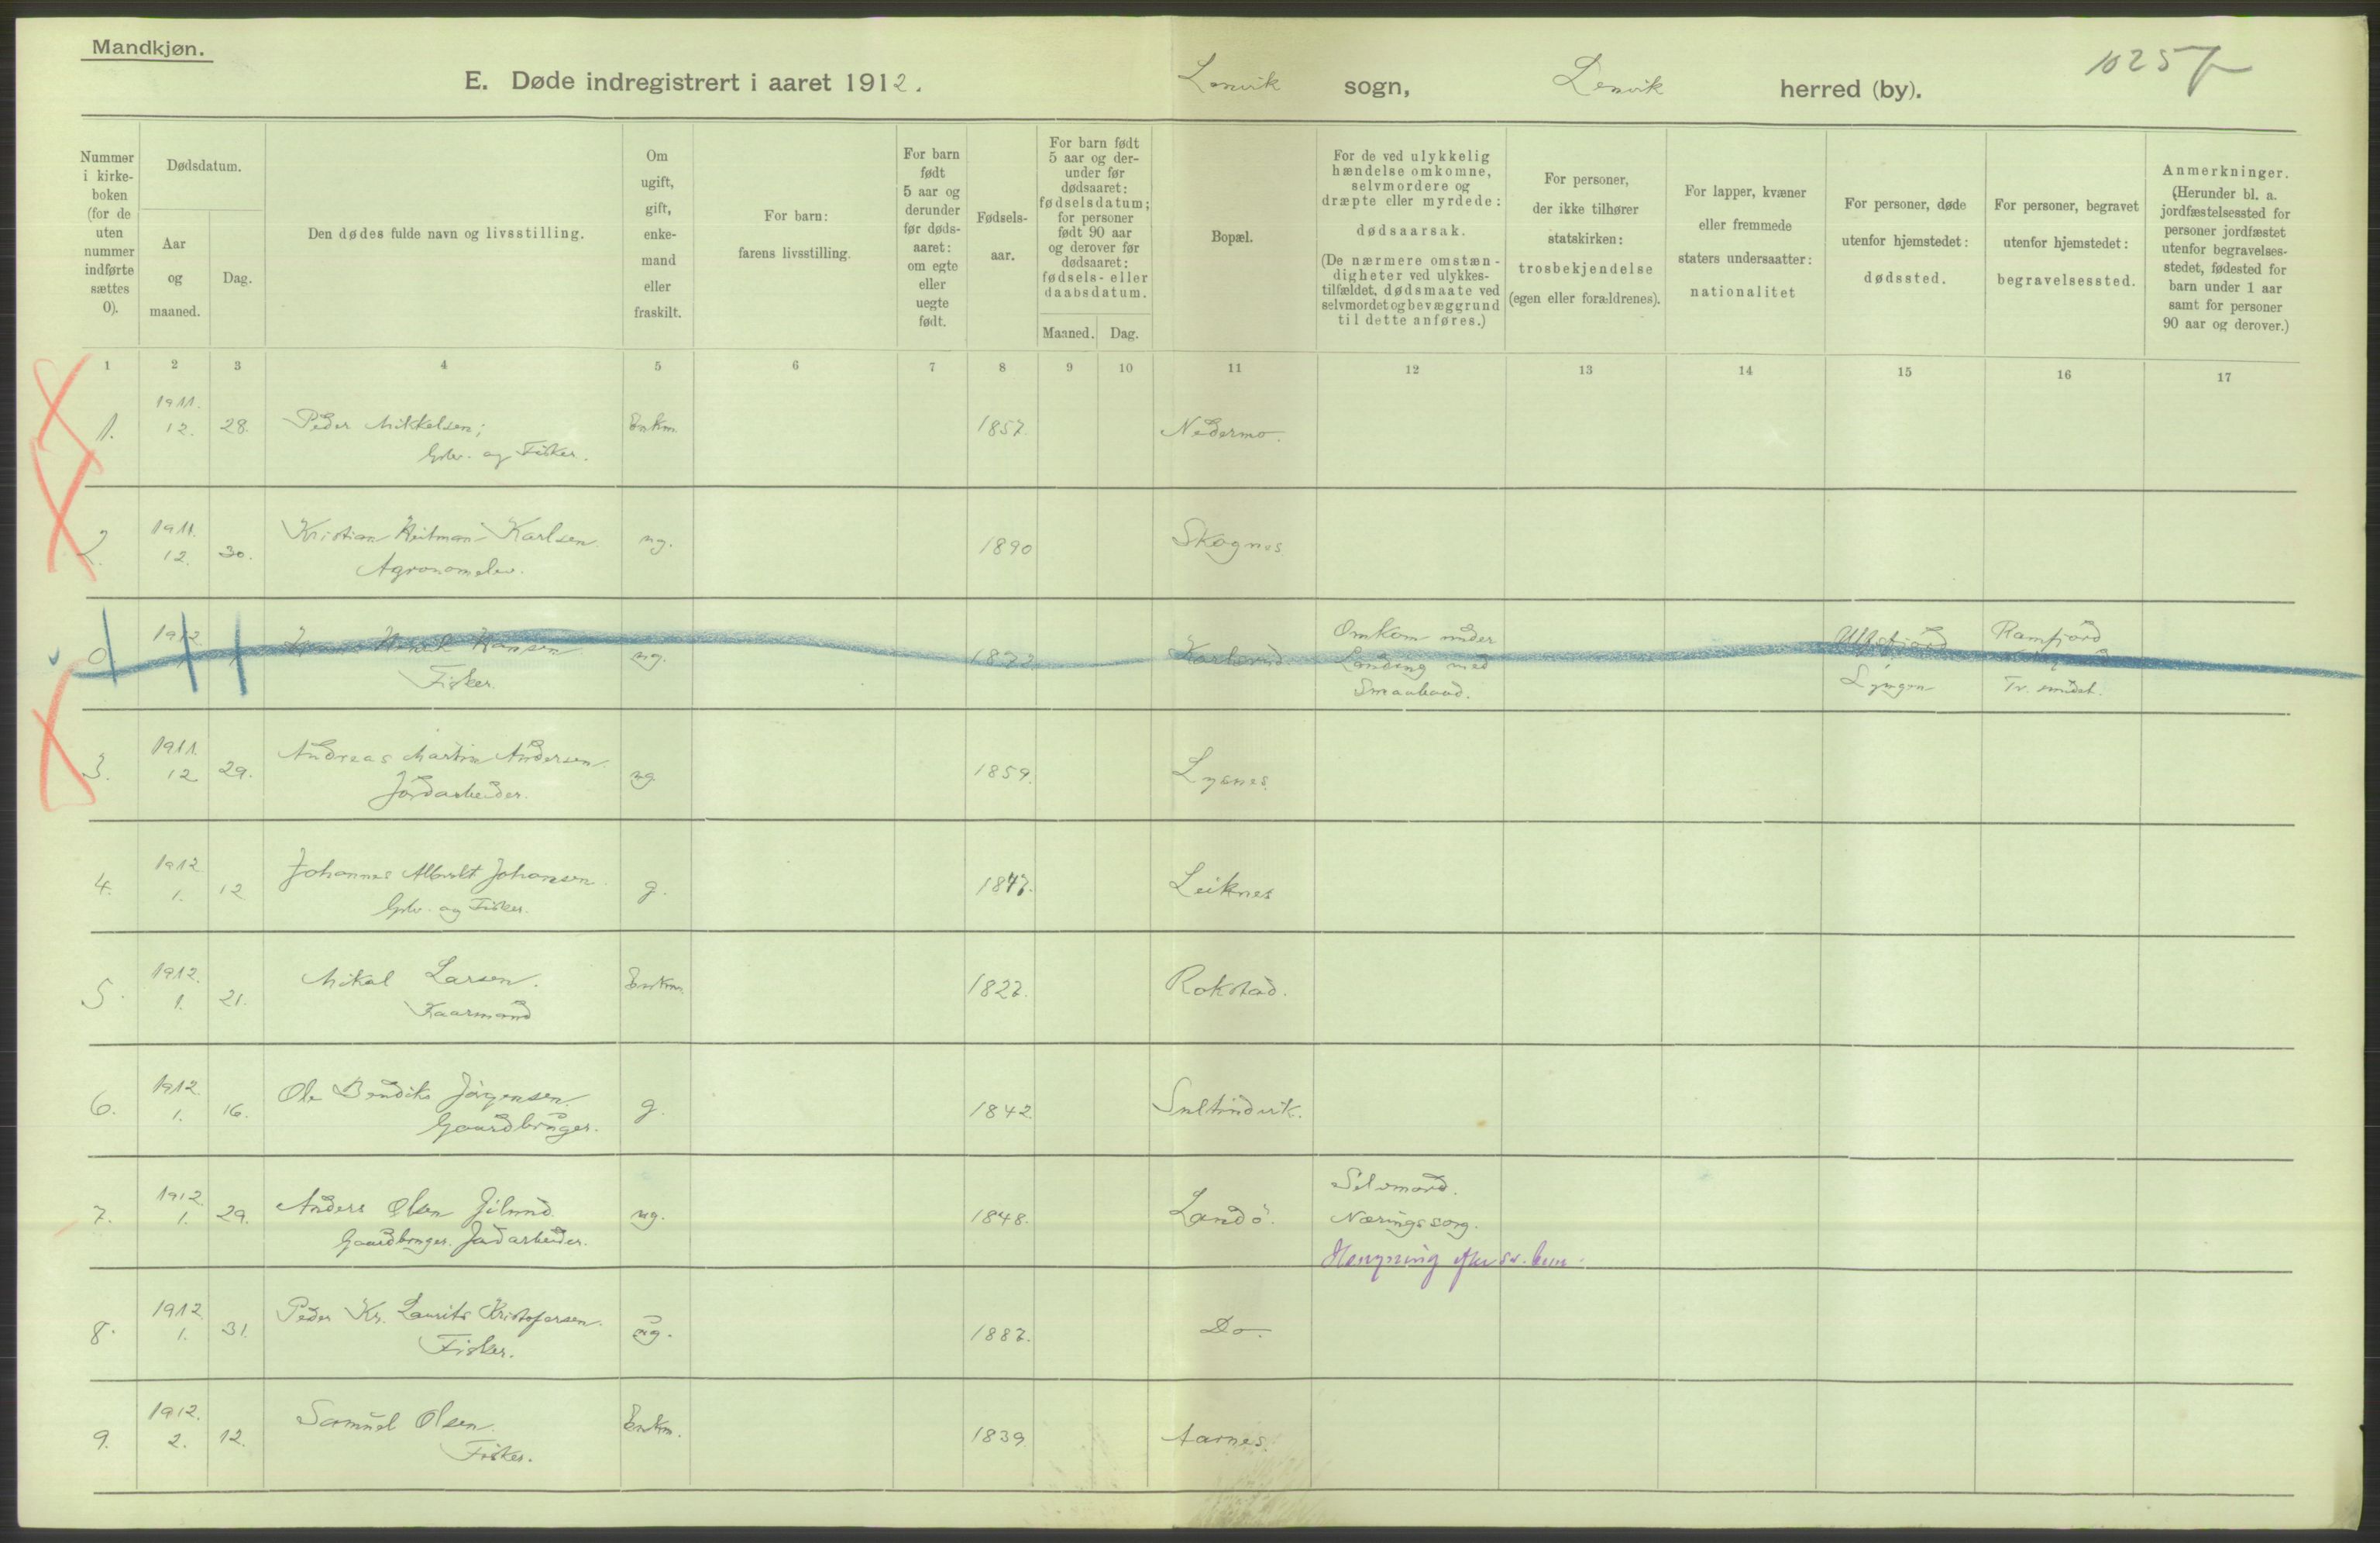 Mandkjøn.
E. Døde indregistrert i aaret 1912.
Lenvik sogn,
Lenvik herred (by).
1025
Nummer i kirke-boken (for de uten nummer indførte sættes 0).
Dødsdatum.
Aar og maaned.
Dag.
Den dødes fulde navn og livsstilling.
Om ugift, gift, enke-mand eller fraskilt.
For barn: farens livsstilling.
For barn født 5 aar og derunder før døds-aaret: om egte eller uegte født.
Fødsels-aar.
For barn født 5 aar og der-under før dødsaaret: fødselsdatum; for personer født 90 aar og derover før dødsaaret: fødsels- eller daabsdatum.
Maaned.
Dag.
Bopæl.
For de ved ulykkelig hændelse omkomne, selvmordere og dræpte eller myrdede: dødsaarsak. (De nærmere omstæn-digheter ved ulykkes-tilfældet, dødsmaate ved selvmordet og bevæggrund til dette anføres.)
For personer, der ikke tilhører statskirken: trosbekjendelse (egen eller forældrenes).
For lapper, kvæner eller fremmede staters undersaatter: nationalitet
For personer, døde utenfor hjemstedet: dødssted.
For personer, begravet utenfor hjemstedet: begravelsessted.
Anmerkninger. (Herunder bl. a. jordfæstelsessted for personer jordfæstet utenfor begravelses-stedet, fødested for barn under 1 aar samt for personer 90 aar og derover.)
1 2 3 4 5 6 7 8 9 10 11 12 13 14 15 16 17
1. 1911. 12. 28. Peder Mikkelsen; Enkm. 1857. Nedermo.
Gbr. og Fisker.
2. 1911. 12. 30. Kristian Karlsen. ug. 1890 Skognes
Agronomelev.
0 1912 Hansen ug. Omkom under Landing med Ramfjord
Fisker. Lyngen
3. 1911. 12 29. Andreas Martin Andersen. ug 1859. Lysnes.
Jordarbeider.
4. 1912 1. 12 Johannes Johansen. g. 1847. Leiknes
Gbr. og Fisker.
5. 1912. 1. 21. Mikal Larsen. Enkm. 1827. Rokstad.
Kaarmand
6. 1912. 1. 16. Ole Bendiks Jörgensen. g. 1842
Gaardbruger.
7. 1912. 1. 29. Anders Olsen ug. 1848. Landö. Selvmord.
Gaardbruger. Jordarbeider. Næringssorg.
8. 1912 1. 31. Peder Kr. Laurits Kristofersen. ug. 1887. Do.
Fisker.
9. 1912. 2. 12. Samuel Olsen. Enkm. 1839 Aarnes.
Fisker.